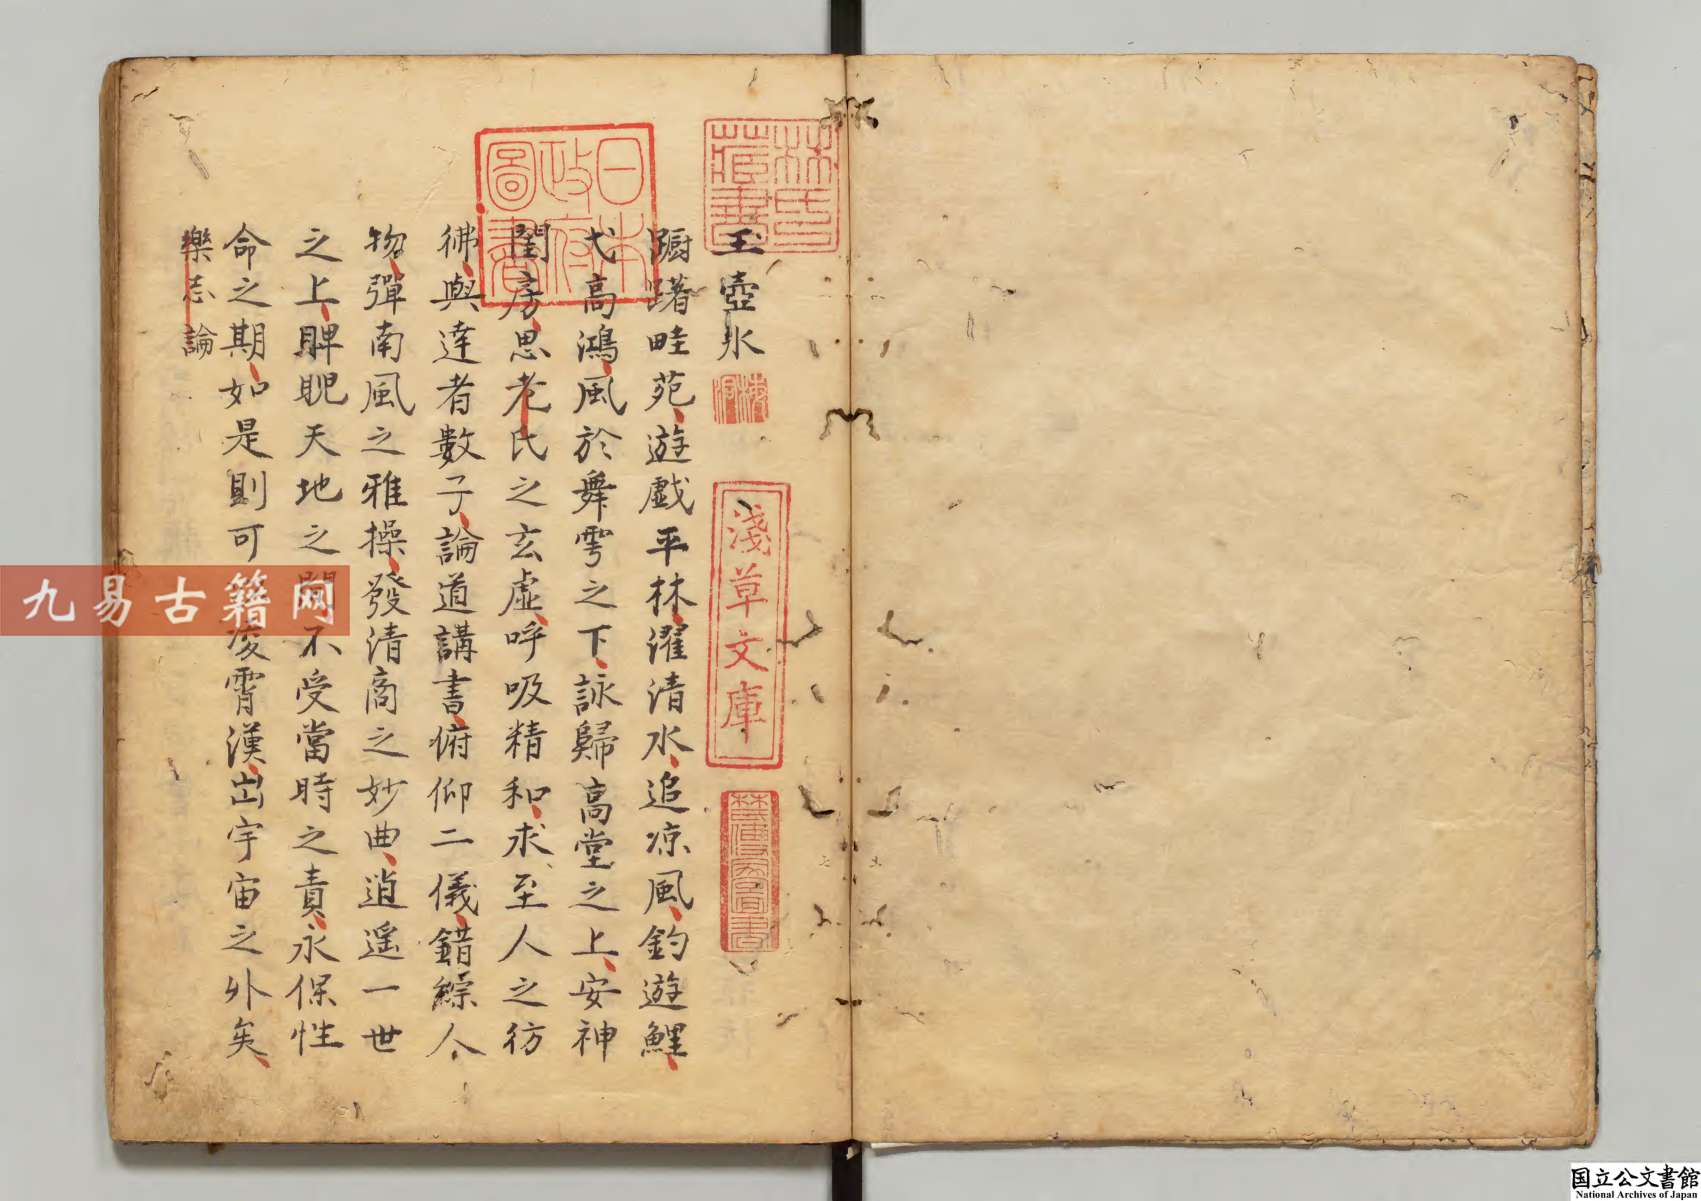 玉壺冰
蹰躇畦苑遊戯平林濯清水追凉風釣遊鯉
弋高鴻風於舞雩之下詠歸高堂之上安神
閨房思老氏之玄虛呼吸精和求至人之彷
彿與達者數子論道講書俯仰二儀錯綜人
物彈南風之雅操發清商之妙曲逍遥一世
之上睥睨天地之間不受當時之責永保性
命之期如是則可凌霄漢出宇宙之外矣
樂志論
林氏藏書
日本政府圖書
淺草文庫
九易古籍网
国立公文書館
National Archives of Japan